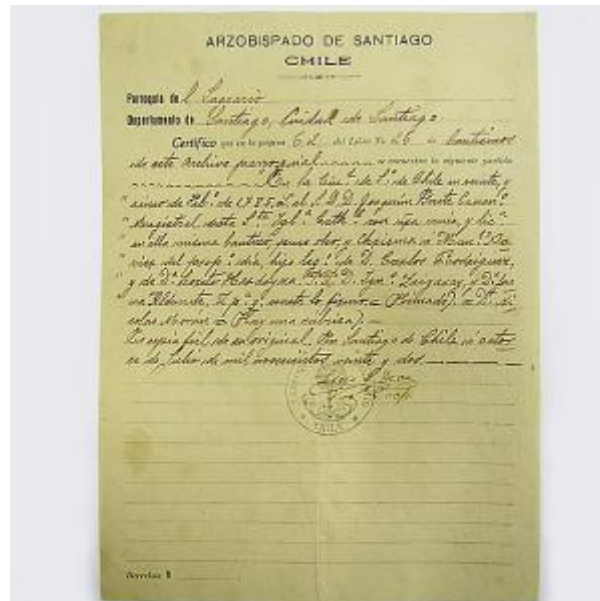 ARZOBISPADO DE SANTIAGO
CHILE
Parroquia del Sagrario
Departamento de Santiago, Ciudad de Santiago
Certifico que en la página 62 del Libro No. 26 de bautismos
de este Archivo parroquial se encuentra la siguiente partida
En la Ciu.d de S.o de Chile en veinte, y
cinco de Feb.o de 1785, el S. D. D. Joaquin
Magistral cath.l con mia, y lic.a
en ella misma bautizó, puso oleo, y Chrisma a Man.l
vier del día, hijo leg.o de D. Carlos Rodriguez,
y de D.a Loreto D. Ign.o y D.a
na lo firmo = (Firmado). = D.r Ni
colas Moran = (Hay una rúbrica). =
Es copia fiel de su original. En Santiago de Chile á cator
ce de Julio de mil novecientos veinte y dos
CHILE
Derechos $